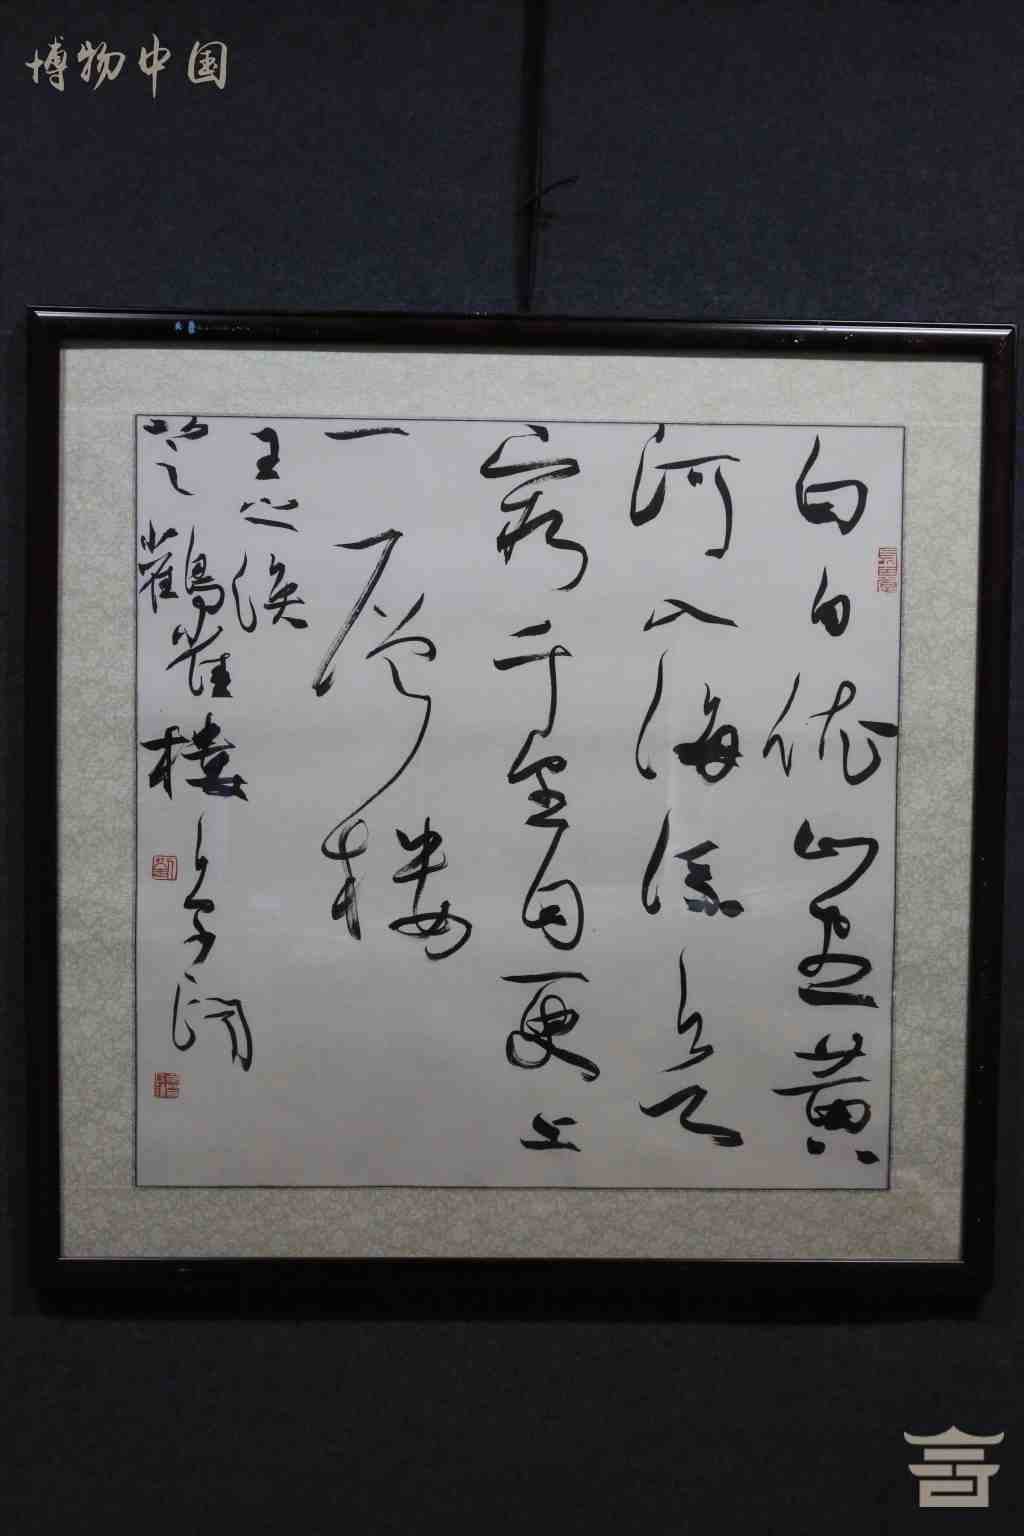 博物中国
白日依山盡黄
河入海流欲
窮千里目更上
一層樓
王之涣
登鸛雀樓